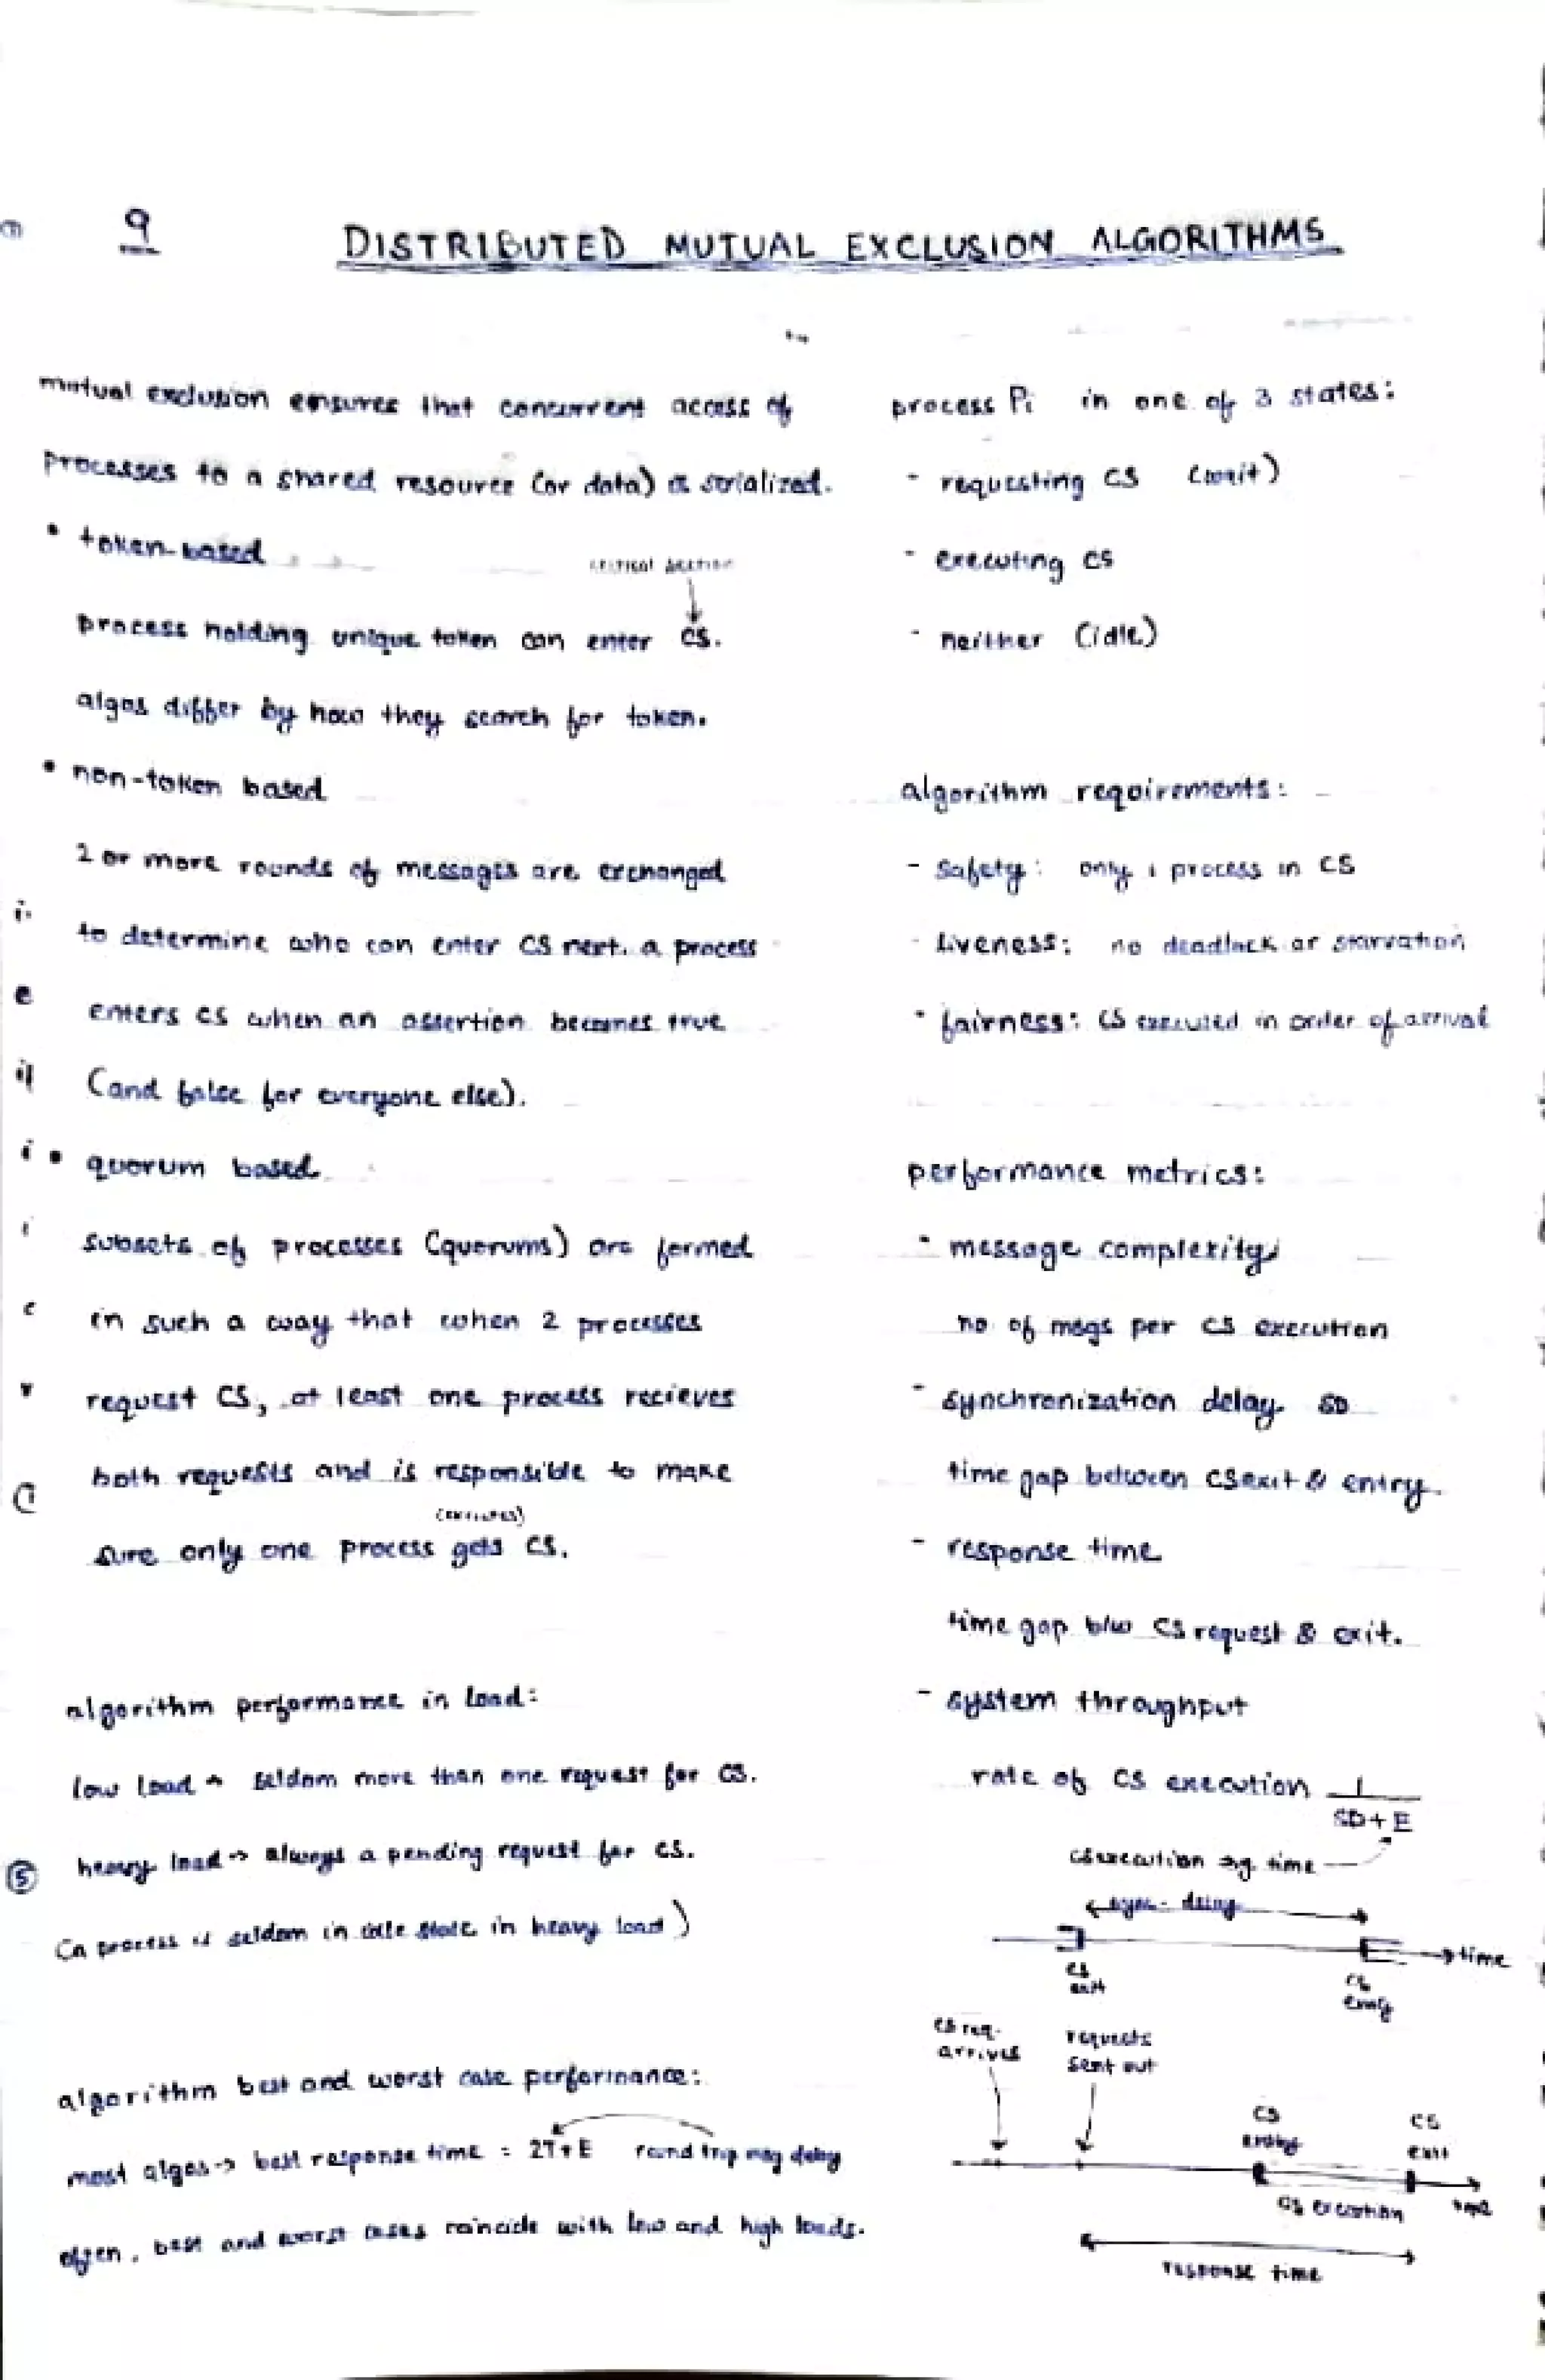 9
DISTRIBUTED MUTUAL EXCLUSION ALGORITHMS
mutual exclusion ensures that concurrent access of
processes to a shared resource (or data) is serialized.
• token-based
critical section
process holding unique token can enter CS.
algos differ by how they search for token.
• non-token based
2 or more rounds of messages are exchanged
to determine who can enter CS next. a process
enters CS when an assertion becomes true
(and false for everyone else).
• quorum based
subsets of processes (quorums) are formed
in such a way that when 2 processes
request CS, at least one process recieves
both requests and is responsible to make
(executes)
sure only one process gets CS.
algorithm performance in load:
low load → seldom more than one request for CS.
⑤ heavy load → always a pending request for CS.
(a process is seldom in idle state in heavy load)
algorithm best and worst case performance:
most algos → best response time = 2T+E round trip msg delay
often, best and worst cases coincide with low and high loads.
process Pi in one of 3 states:
- requesting CS (wait)
- executing CS
- neither (idle)
algorithm requirements:
- safety: only 1 process in CS
- liveness: no deadlock or starvation
- fairness: CS executed in order of arrival
performance metrics:
- message complexity
no of msgs per CS execution
- synchronization delay SD
time gap between CS exit & entry.
- response time
time gap b/w CS request & exit.
- system throughput
rate of CS execution 1
SD+E
CS execution avg time
sync. delay
time
CS
exit
CS
entry
CS req.
arrives
requests
sent out
CS
entry
CS
exit
CS execution
time
response time